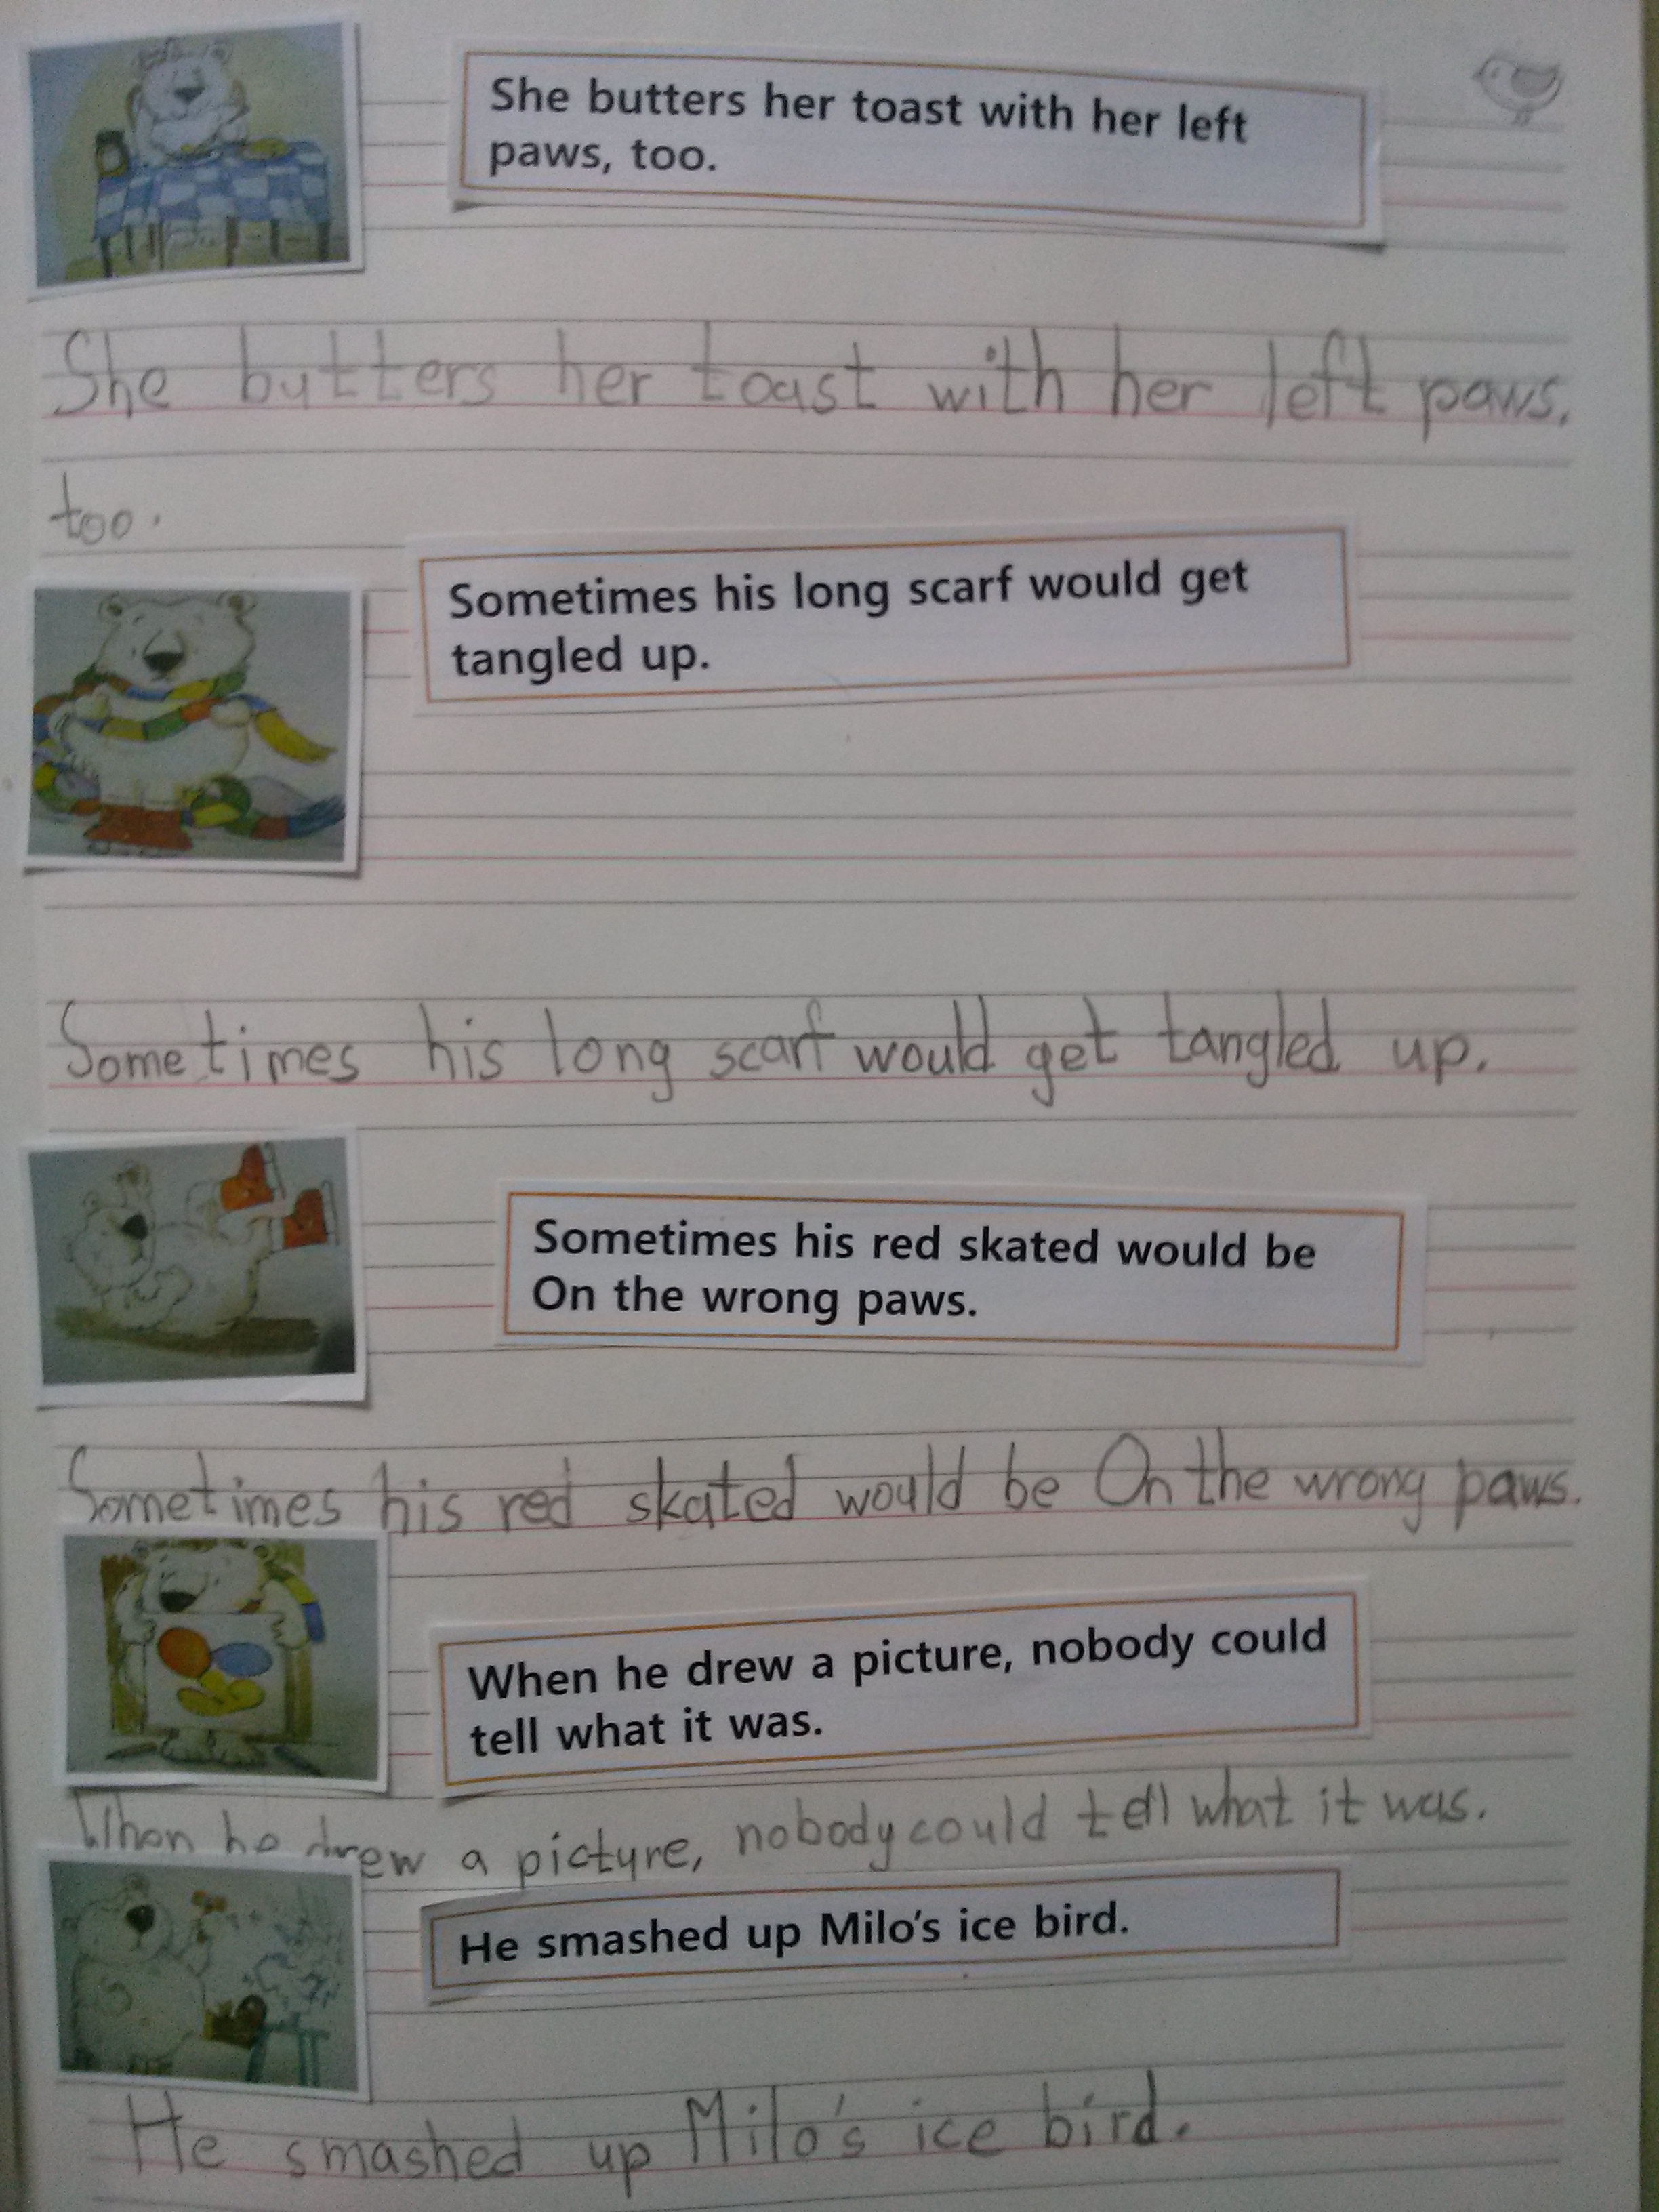 She butters her toast with her left
paws, too.
She butters her toast with her left paws.
too.
Sometimes his long scarf would get
tangled up.
Sometimes his long scarf would get tangled up.
Sometimes his red skated would be
On the wrong paws.
Sometimes his red skated would be On the wrong paws.
When he drew a picture, nobody could
tell what it was.
When he drew a picture, nobody could tell what it was.
He smashed up Milo's ice bird.
He smashed up Milo's ice bird.